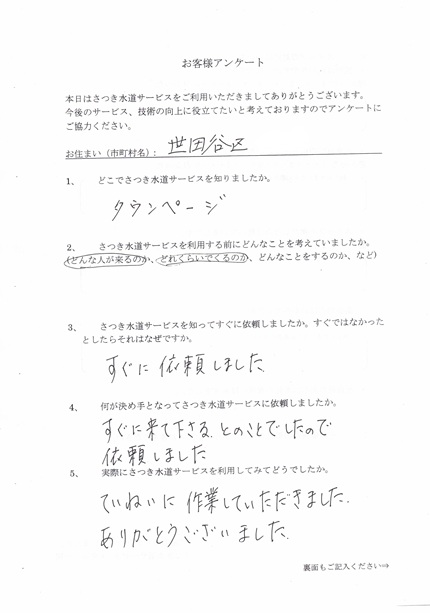 お客様アンケート
本日はさつき水道サービスをご利用いただきましてありがとうございます。
今後のサービス、技術の向上に役立てたいと考えておりますのでアンケートに
ご協力ください。
お住まい（市町村名）： 世田谷区
1、 どこでさつき水道サービスを知りましたか。
タウンページ
2、 さつき水道サービスを利用する前にどんなことを考えていましたか。
(どんな人が来るのか、どれくらいでくるのか、どんなことをするのか、など)
3、 さつき水道サービスを知ってすぐに依頼しましたか。すぐではなかった
としたらそれはなぜですか。
すぐに依頼しました
4、 何が決め手となってさつき水道サービスに依頼しましたか。
すぐに来て下さる、とのことでしたので
依頼しました
5、 実際にさつき水道サービスを利用してみてどうでしたか。
ていねいに作業していただきました.
ありがとうございました.
裏面もご記入ください⇒